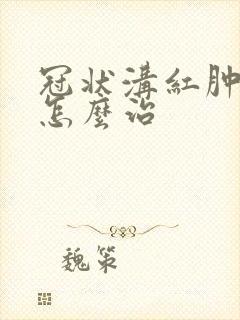 冠状溝紅肿
怎麼治
魏策